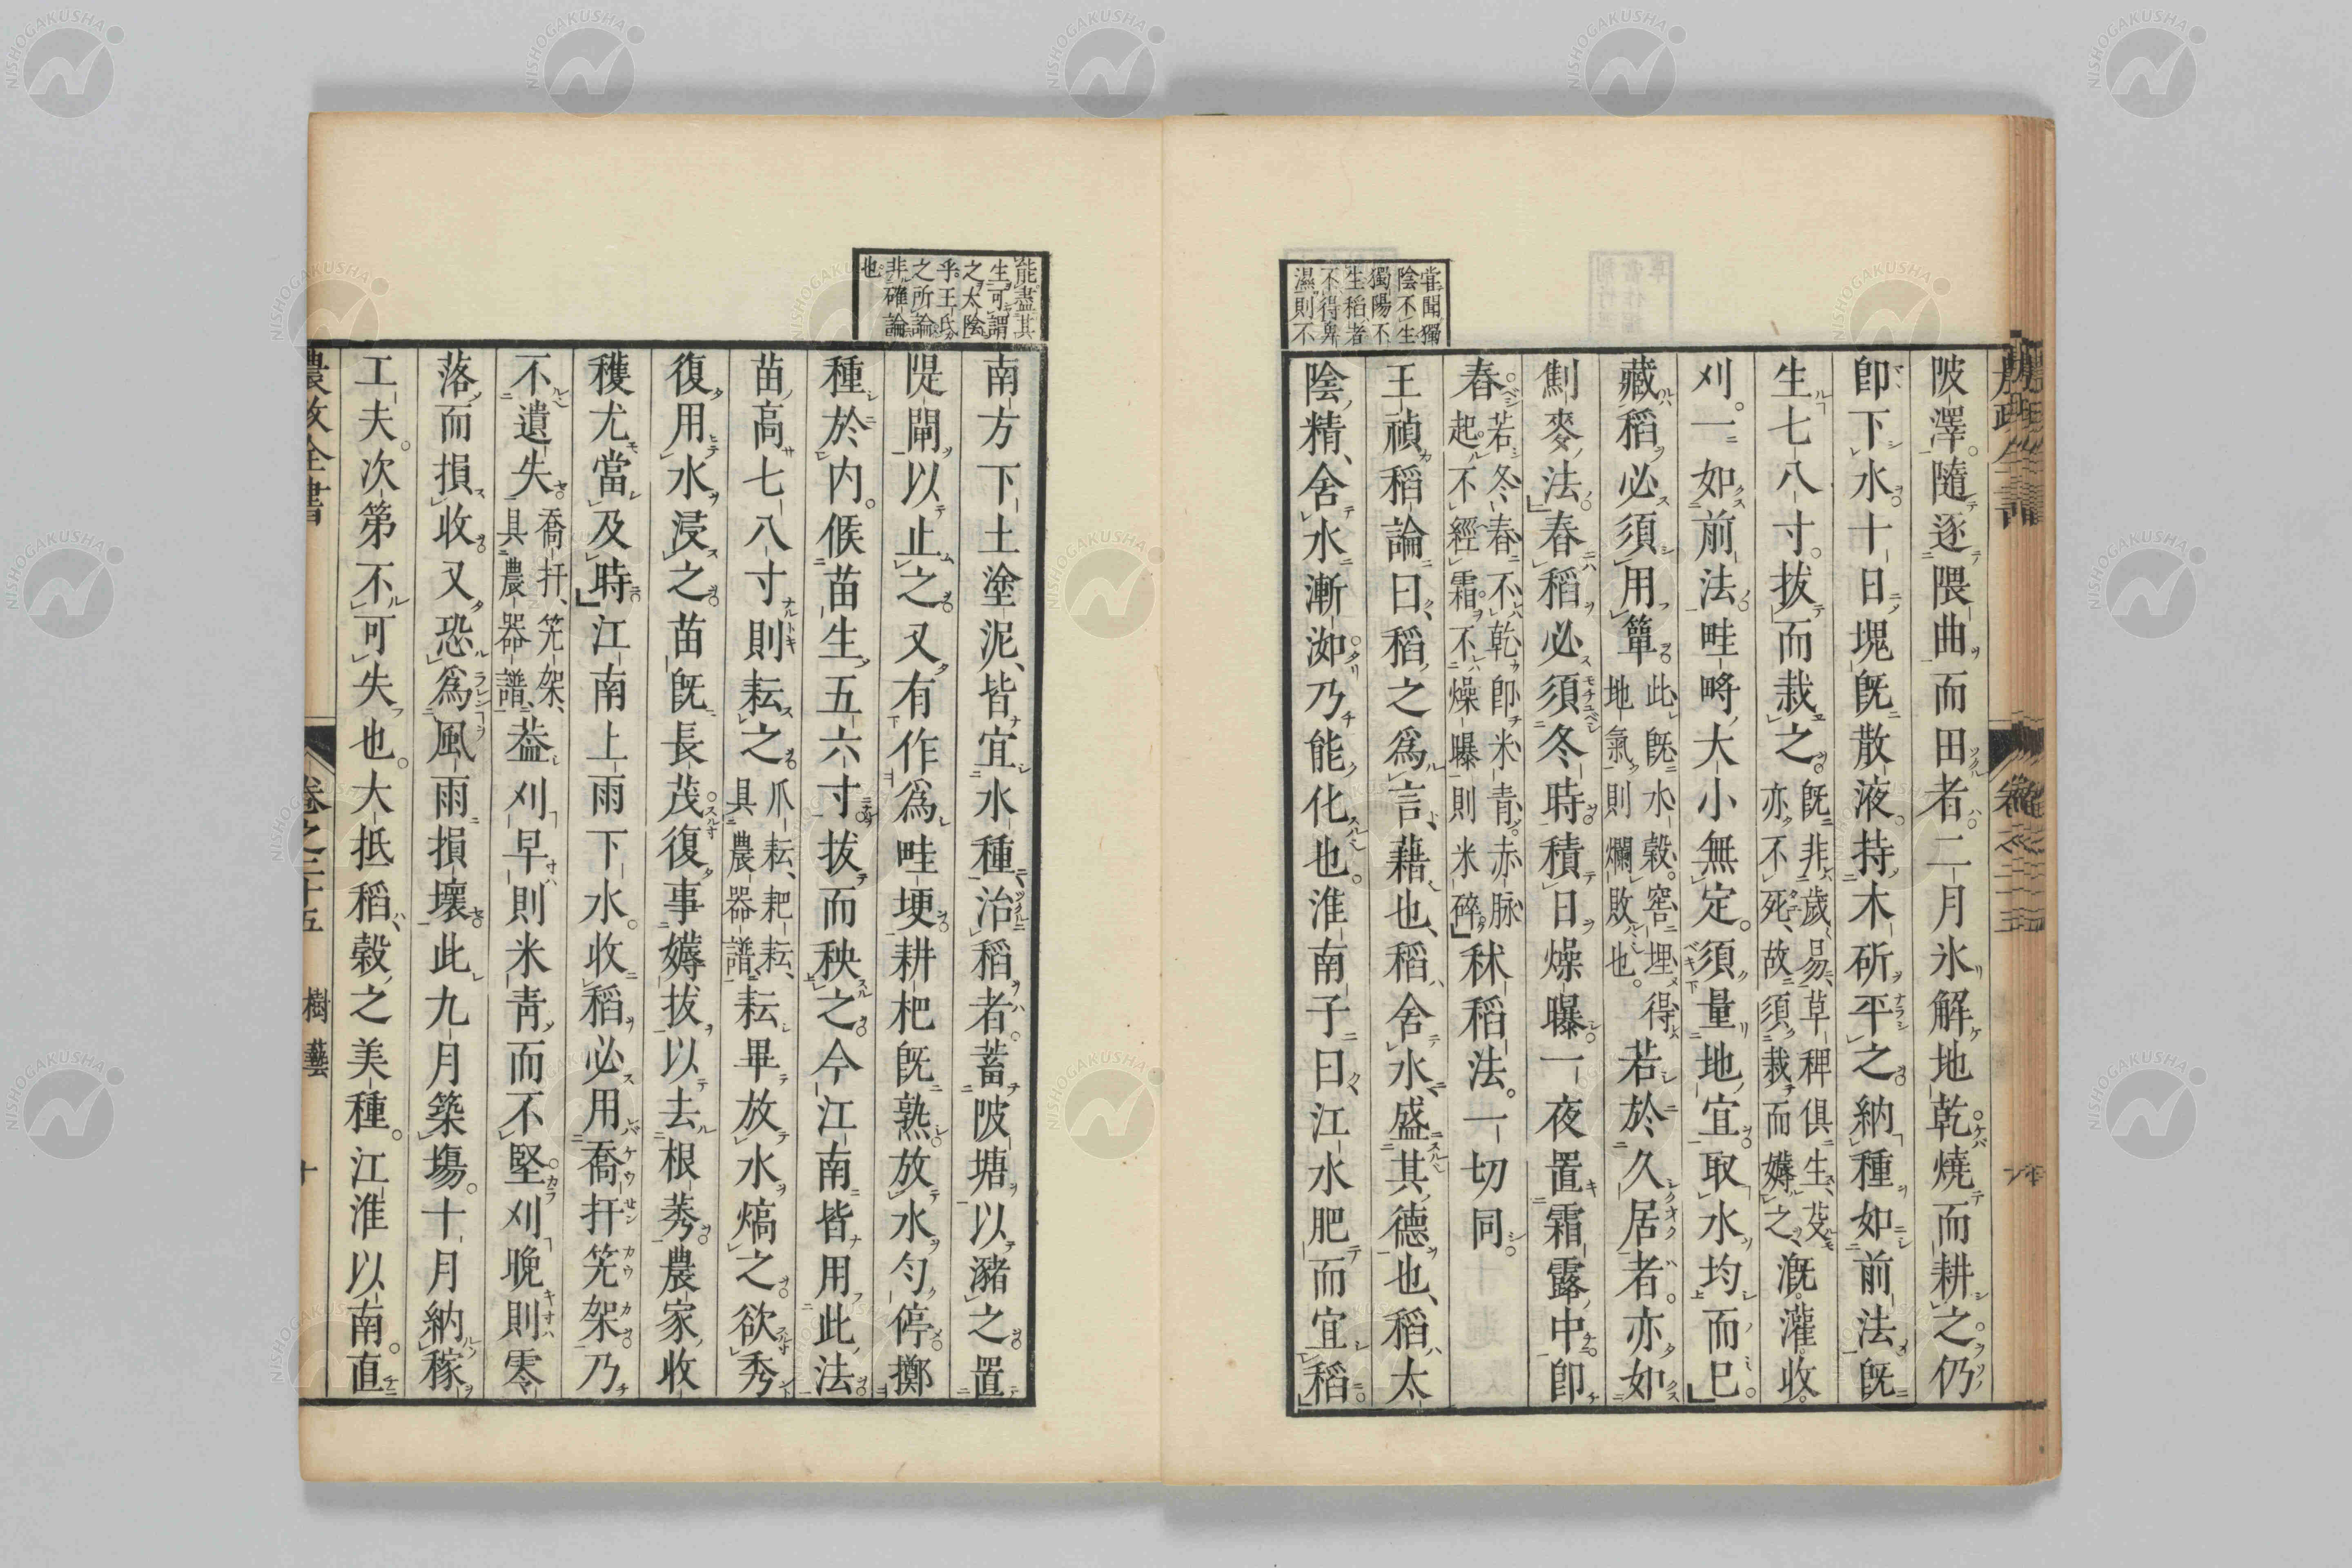 當聞獨
陰不生
獨陽不
生稻者
不得卑
濕則不
陂澤隨逐隈曲而田者二月氷解地乾燒而耕之仍
即下水十日塊既散液持木斫平之納種如前法既
生七八寸拔而栽之既非歲易草稗俱生芟亦不死故須栽而薅之漑灌收
刈一如前法畦畤大小無定須量地宜取水均而已
藏稻必須用簞此既水穀窖埋得地氣則爛敗也若於久居者亦如
劁麥法春稻必須冬時積日燥曝一夜置霜露中即
舂若冬春不乾即米青赤脉起不經霜不燥曝則米碎秫稻法一切同
王禎稻論曰稻之爲言藉也稻舍水盛其德也稻太
陰精舍水漸洳乃能化也淮南子曰江水肥而宜稻
能盡其
生可謂
之太陰
乎王氏
之所論
非確論
也
南方下土塗泥皆宜水種治稻者蓄陂塘以瀦之置
隄閘以止之又有作爲畦埂耕杷既熟放水勻停擲
種於内候苗生五六寸拔而秧之今江南皆用此法
苗高七八寸則耘之爪耘耙耘具農器譜耘畢放水熇之欲秀
復用水浸之苗既長茂復事薅拔以去根莠農家收
穫尤當及時江南上雨下水收稻必用喬扦笐架乃
不遺失喬扞笐架具農器譜葢刈早則米青而不堅刈晚則零
落而損收又恐爲風雨損壞此九月築塲十月納稼
工夫次第不可失也大抵稻穀之美種江淮以南直
農政全書
卷之二十五
樹藝
十